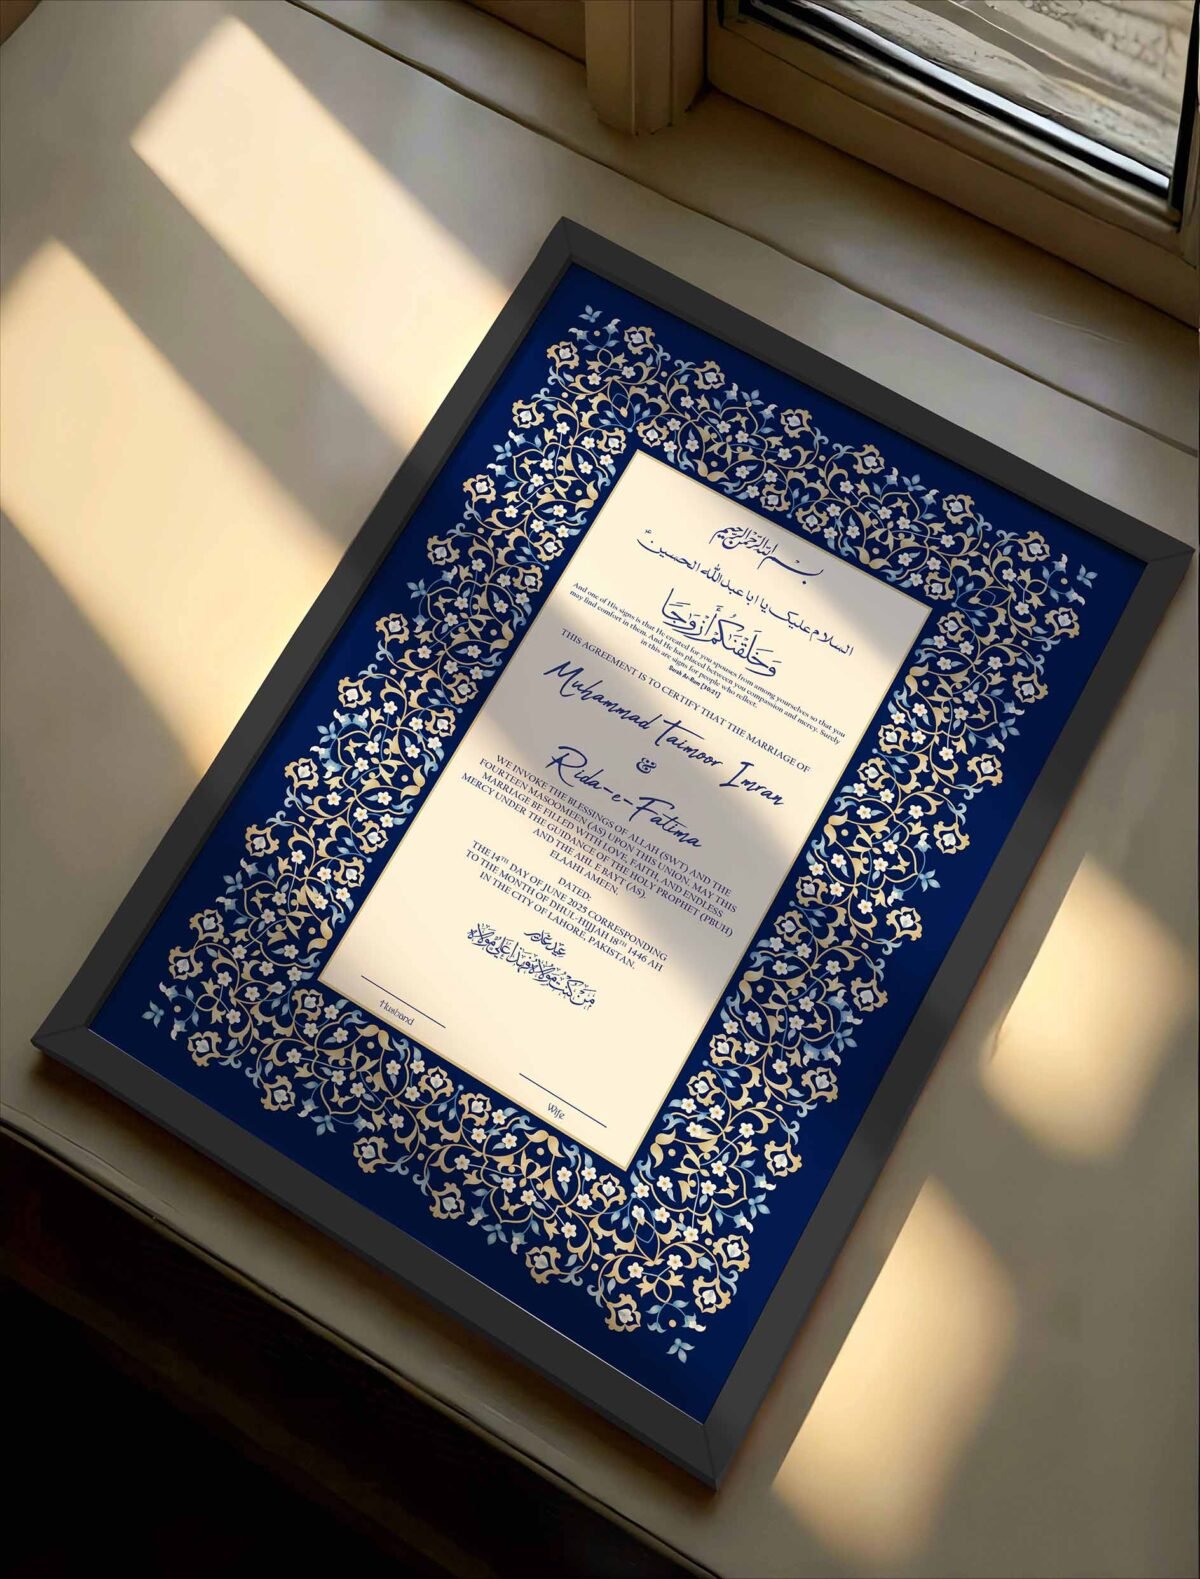 بسم الله الرحمن الرحيم
السلام علیک یا ابا عبدالله الحسینؑ
وَخَلَقْنَاكُمْ أَزْوَاجًا
And one of His signs is that He created for you spouses from among yourselves so that you
may find comfort in them. And He has placed between you compassion and mercy. Surely
in this are signs for people who reflect.
Surah Ar-Rum [30:21]
THIS AGREEMENT IS TO CERTIFY THAT THE MARRIAGE OF
Muhammad Taimoor Imran
&
Rida-e-Fatima
WE INVOKE THE BLESSINGS OF ALLAH (SWT) AND THE
FOURTEEN MASOOMEEN (AS) UPON THIS UNION. MAY THIS
MARRIAGE BE FILLED WITH LOVE, FAITH, AND ENDLESS
MERCY UNDER THE GUIDANCE OF THE HOLY PROPHET (PBUH)
AND THE AHL E BAYT (AS).
ELAAHI AMEEN.
DATED:
THE 14TH DAY OF JUNE 2025 CORRESPONDING
TO THE MONTH OF DHUL-HIJJAH 18TH 1446 AH
IN THE CITY OF LAHORE, PAKISTAN.
عید غدیر
مَن كنتُ مولاه فهذا علي مولاه
Husband
Wife